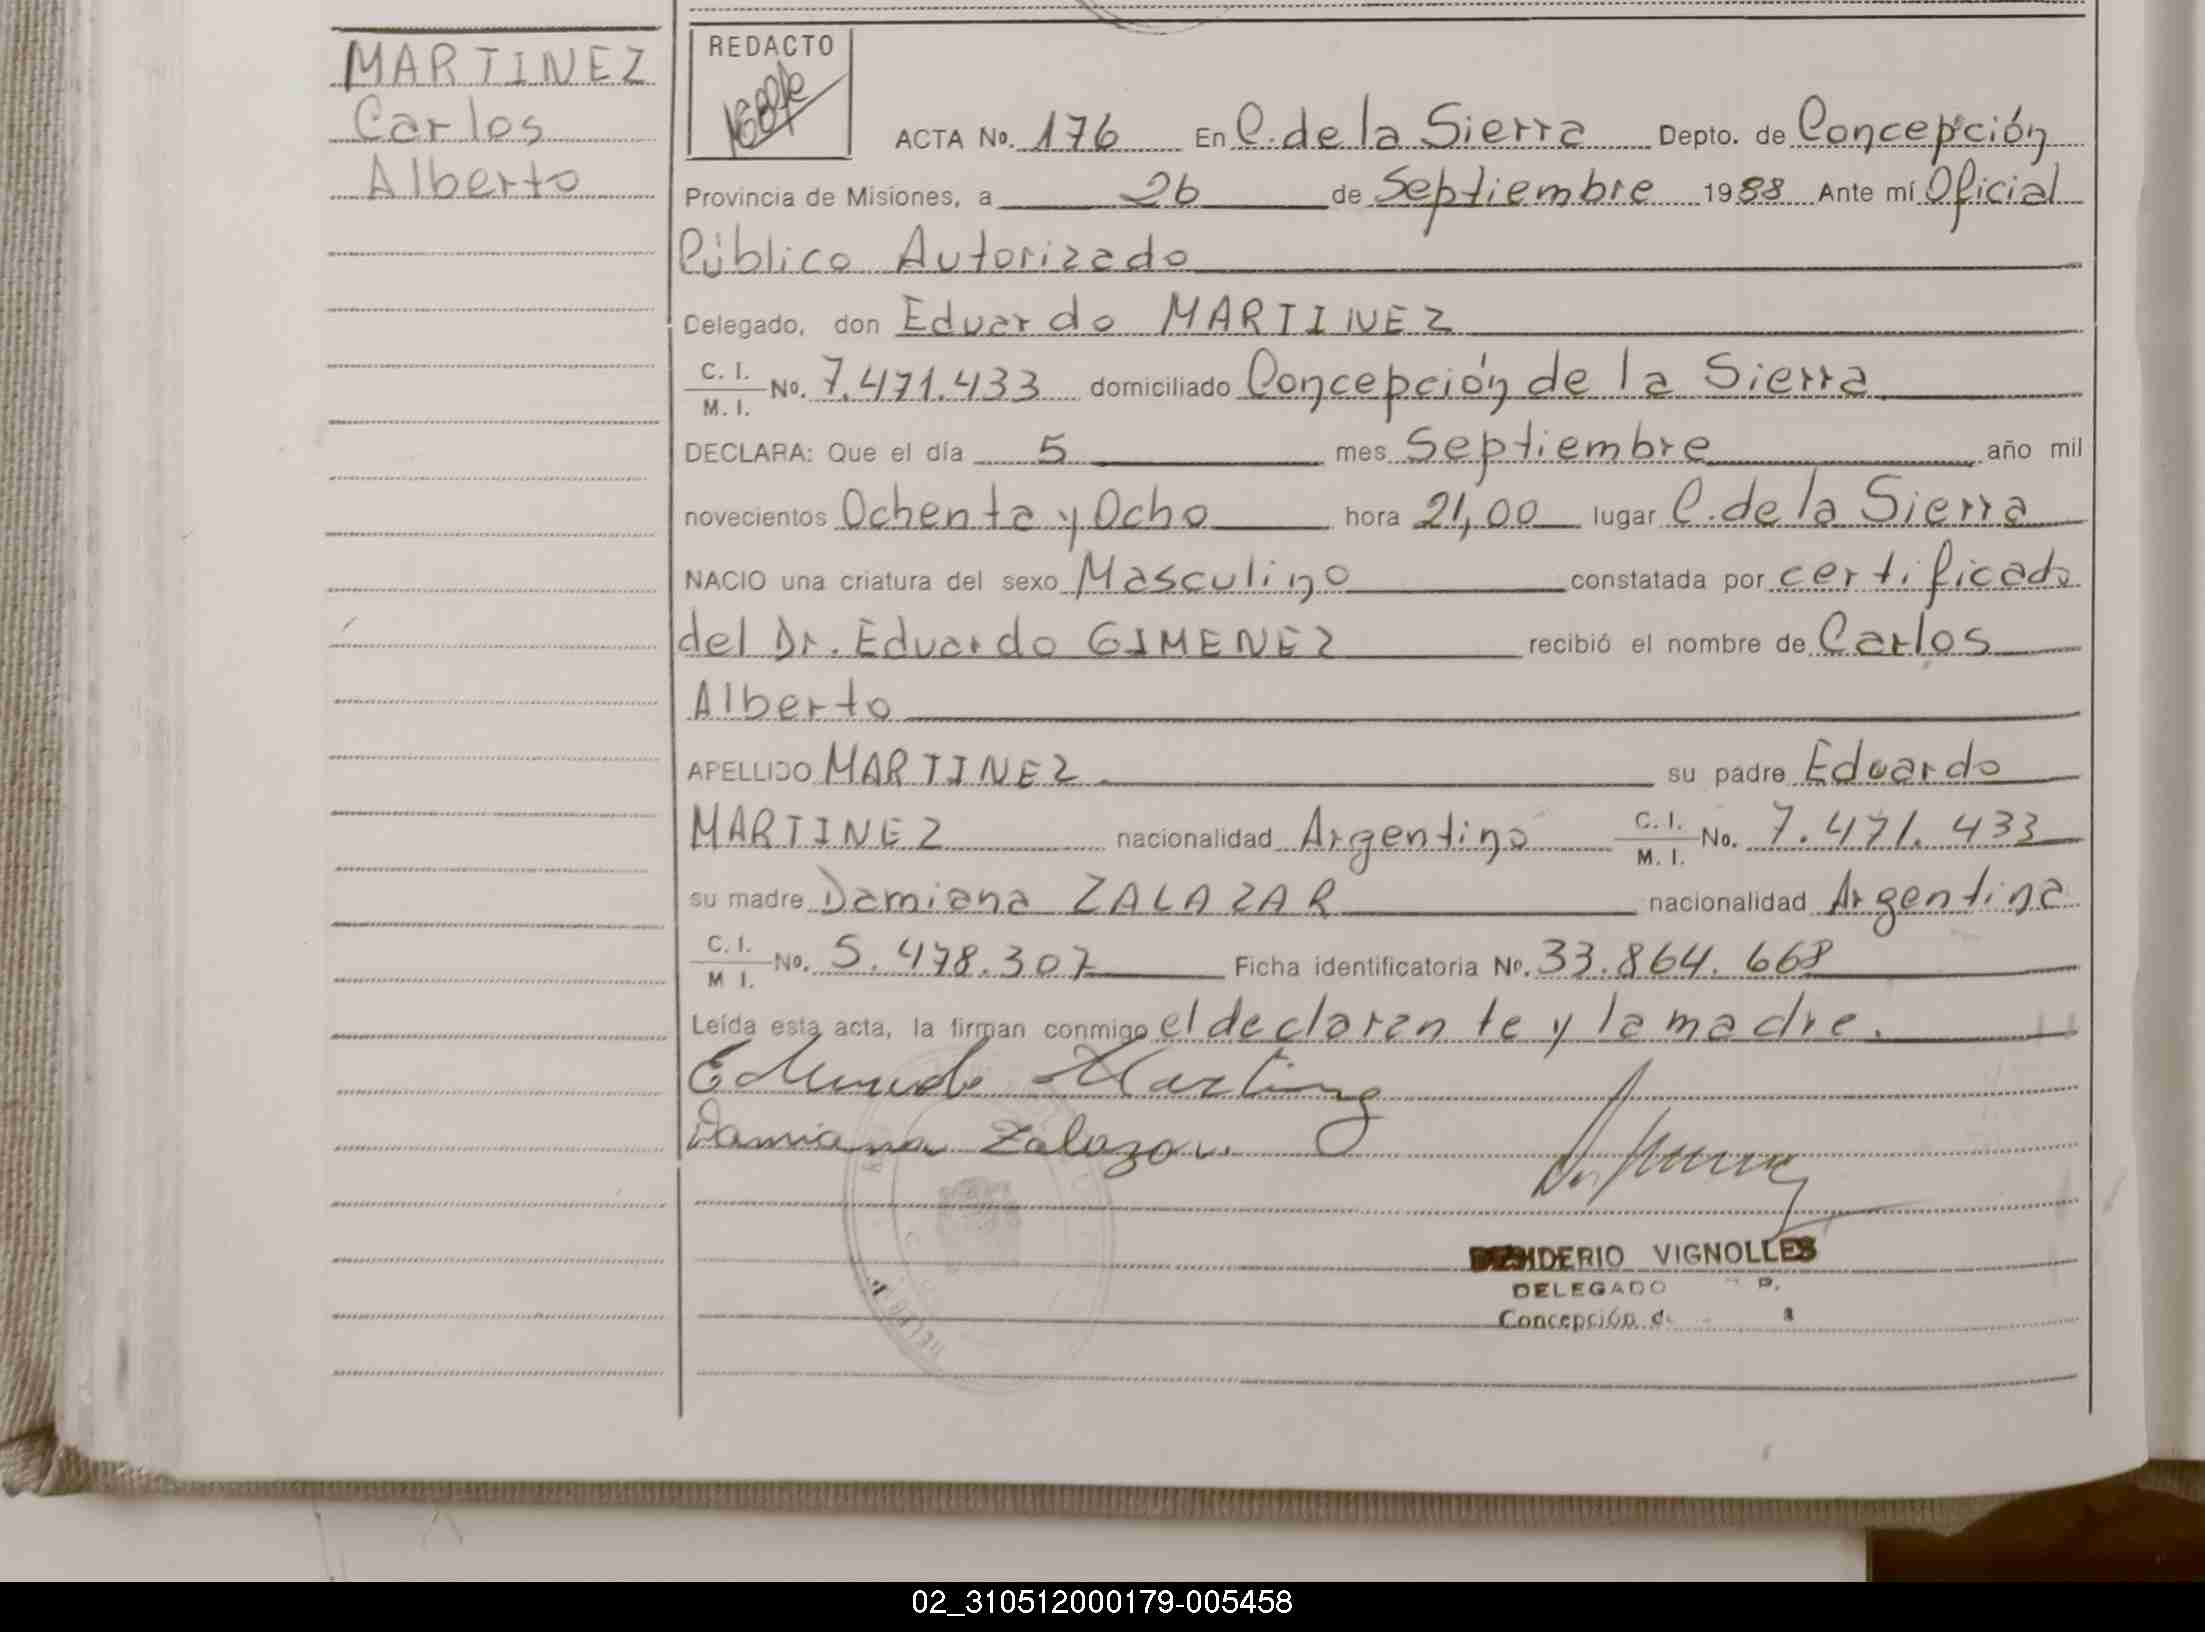 MARTINEZ
Carlos
Alberto
REDACTO
ACTA No. 176 En C. de la Sierra Depto. de Concepción
Provincia de Misiones, a 26 de Septiembre 1988 Ante mí Oficial
Público Autorizado
Delegado, don Eduardo MARTINEZ
C. I. / M. I. No. 7.471.433 domiciliado Concepción de la Sierra
DECLARA: Que el día 5 mes Septiembre año mil
novecientos Ochenta y Ocho hora 21,00 lugar C. de la Sierra
NACIO una criatura del sexo Masculino constatada por certificado
del Dr. Eduardo GIMENEZ recibió el nombre de Carlos
Alberto
APELLIDO MARTINEZ su padre Eduardo
MARTINEZ nacionalidad Argentino C. I. / M. I. No. 7.471.433
su madre Damiana ZALAZAR nacionalidad Argentina
C. I. / M I. No. 5.478.307 Ficha identificatoria No. 33.864.668
Leída esta acta, la firman conmigo el declarante y la madre.
Eduardo Martinez
Damiana Zalazar
VIGNOLLES
DELEGADO
Concepción
02_310512000179-005458